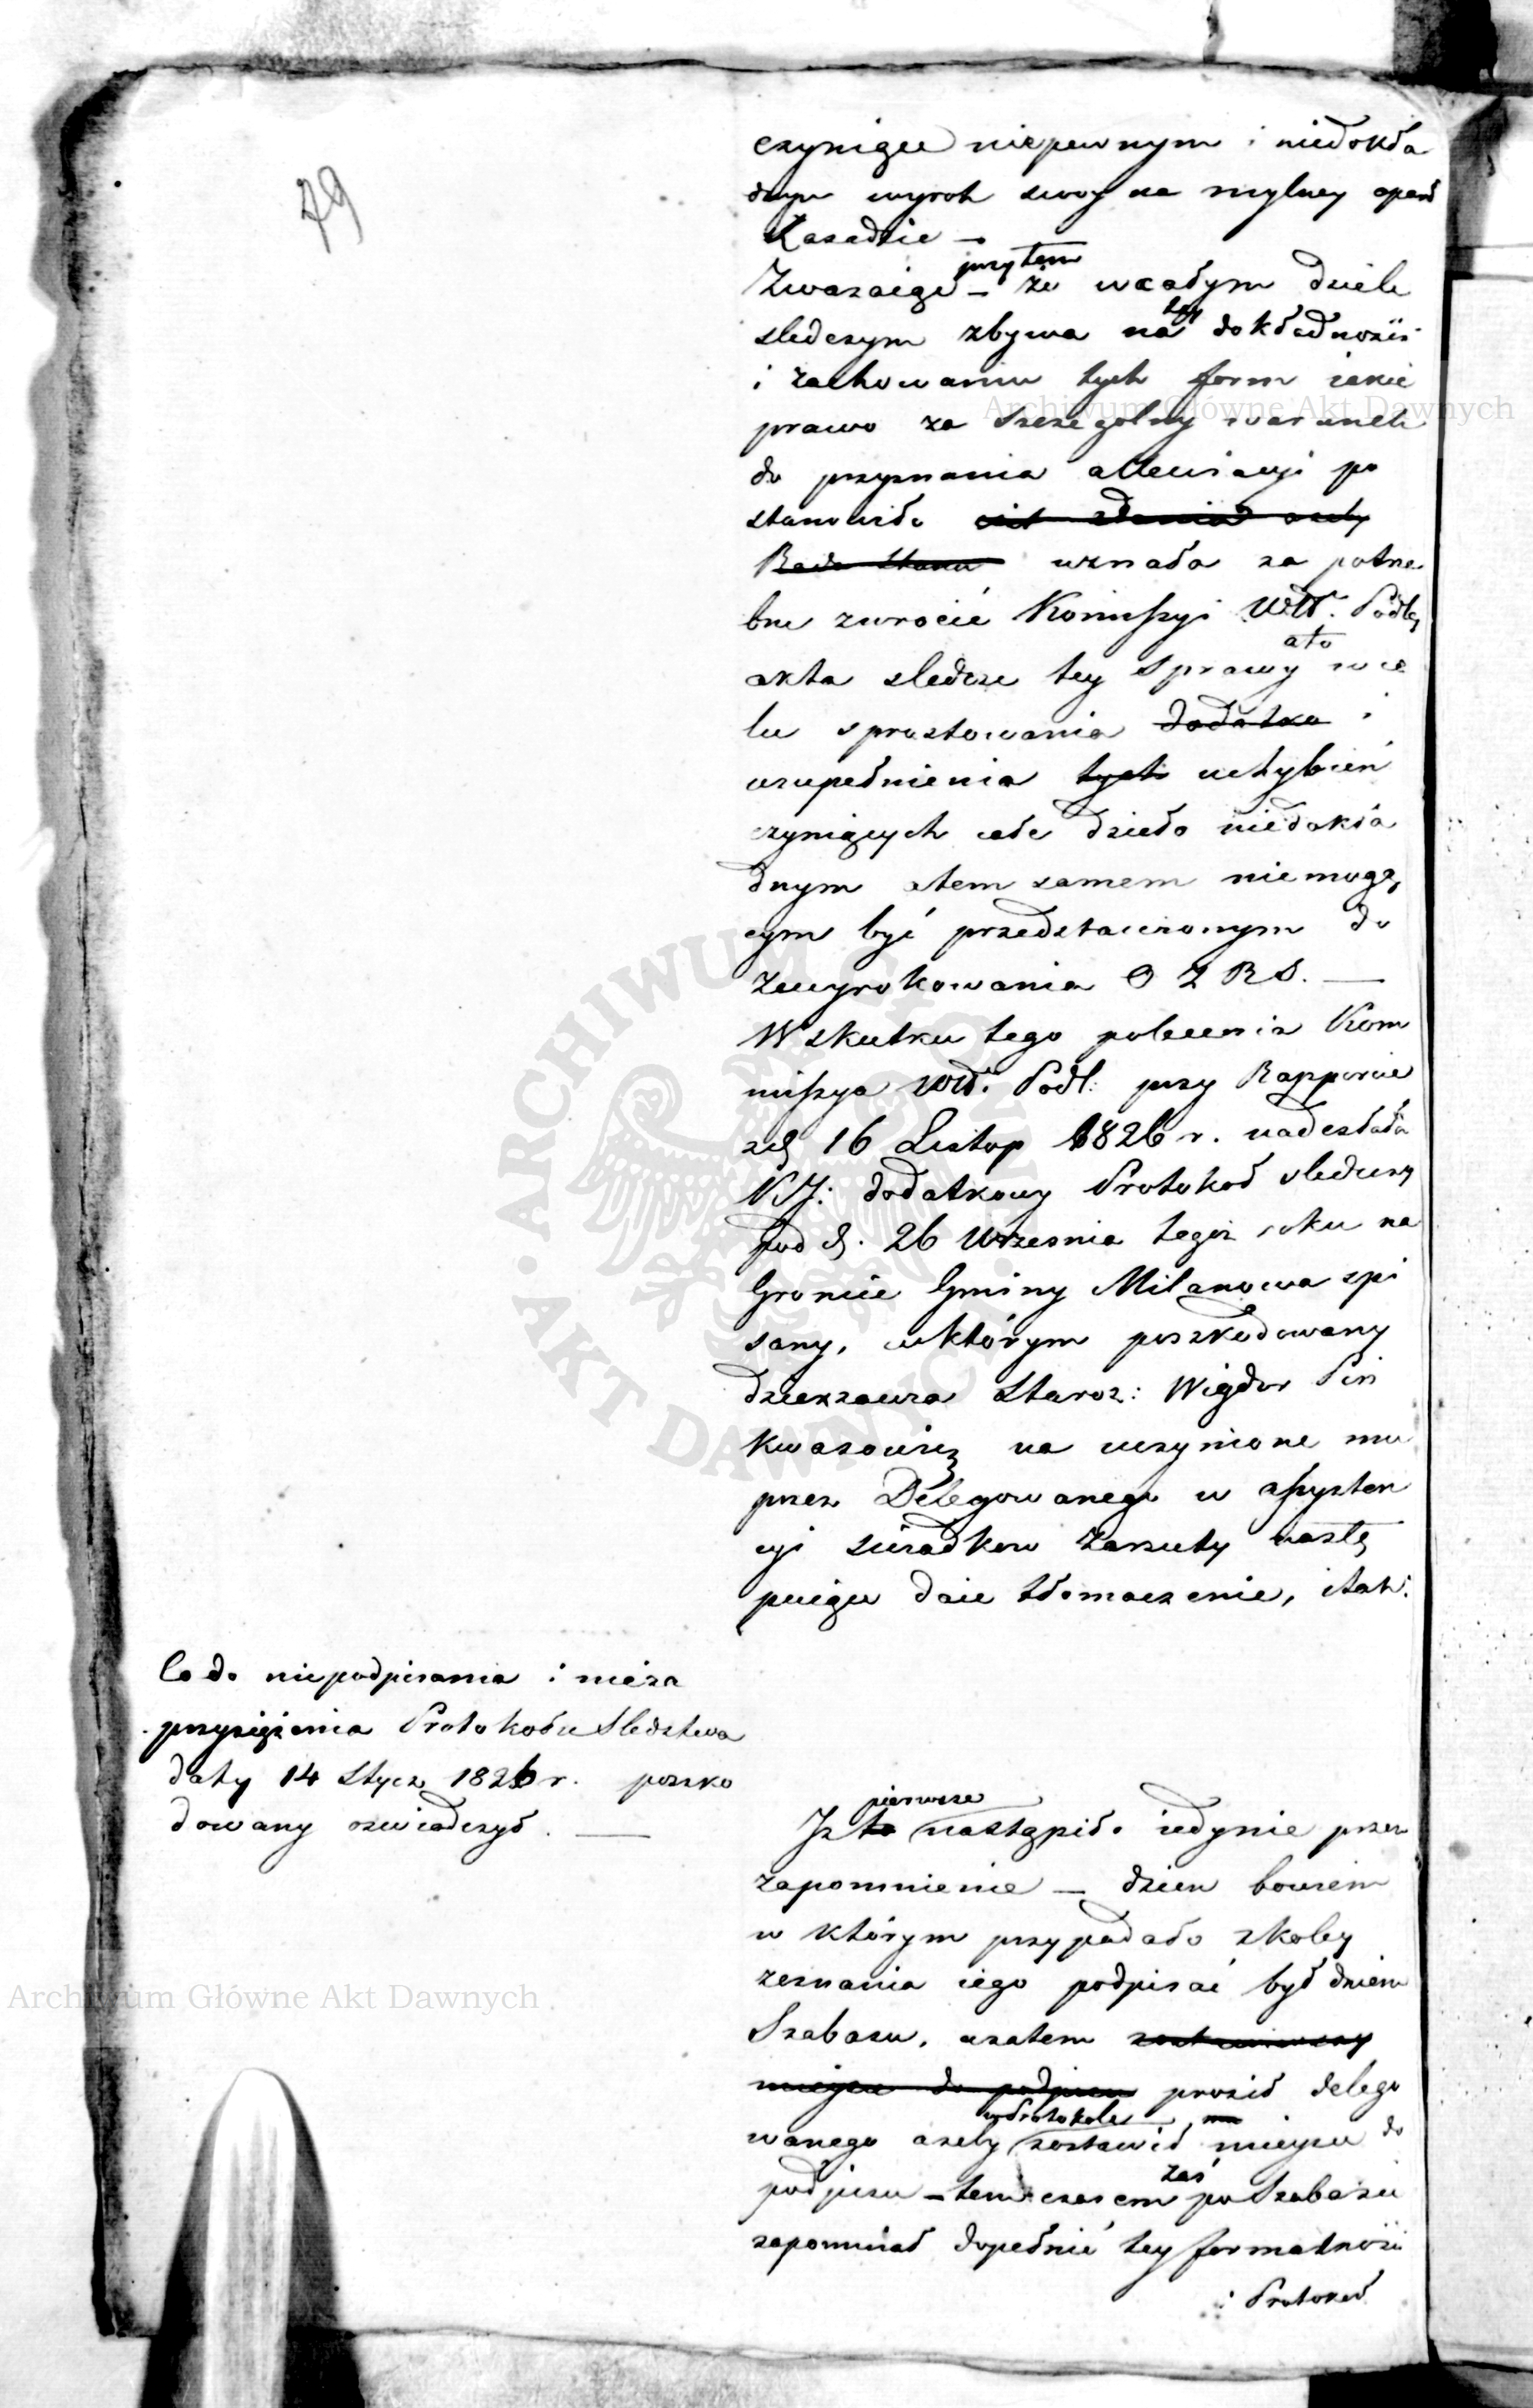 79
czyniąc niepewnym i niedokła
dnym wyrok swoy na mylney oparł
Zasadzie —
Zważaiąc przytem — że wcałym dziele
sledczym zbywa na tey dokładności
i zachowaniu tych form iakie
prawo za szczegolny warunek
do przyznania allewiacyi po
stanowiło
Rada Stanu uznała za potrze
bne zwrocić Kommissyi Wdt. Podl.
akta sledcze tey sprawy a to w ce
lu sprostowania dodatku i
uzupełnienia tych uchybień
czyniących całe dzieło niedokła
dnym atem samem niemogą,
cym być przedstawionym do
Zawyrokowania O Z R S. —
W skutku tego polecenia Kom
missya Wdt. Podl: przy Rapporcie
z d. 16 Listop 1826 r. nadesłała
dodatkowy Protokoł sledczy
pod d. 26 Września tegoż roku na
Groncie Gminy Milanowa spi
sany, w którym poszkodowany
dzierzawca Staroz: Wigdor Pin
kwasowicz na uczynione mu
przez Delegowanego w assysten
cyi świadkow zarzuty nastę
puiące daie tłomaczenie, i tak:
Co do niepodpisania i nieza
przysiężenia Protokołu Sledztwa
daty 14 Stycz 1826 r. poszko
dowany oswiadczył. —
Iż to pierwsze nastąpiło iedynie przez
zapomnienie — dzien bowiem
w którym przypadało z koley
zeznania iego podpisać był dniem
Szabasu, azatem zostawiwszy
mieysce do podpisu prosił delego
wanego azeby w Protokole zostawił mieysce do
podpisu — tem czasem zaś po Szabasie
zapomniał dopełnić tey formalności
i Protokoł
Archiwum Główne Akt Dawnych
Archiwum Główne Akt Dawnych
ARCHIWUM GŁÓWNE · AKT DAWNYCH ·